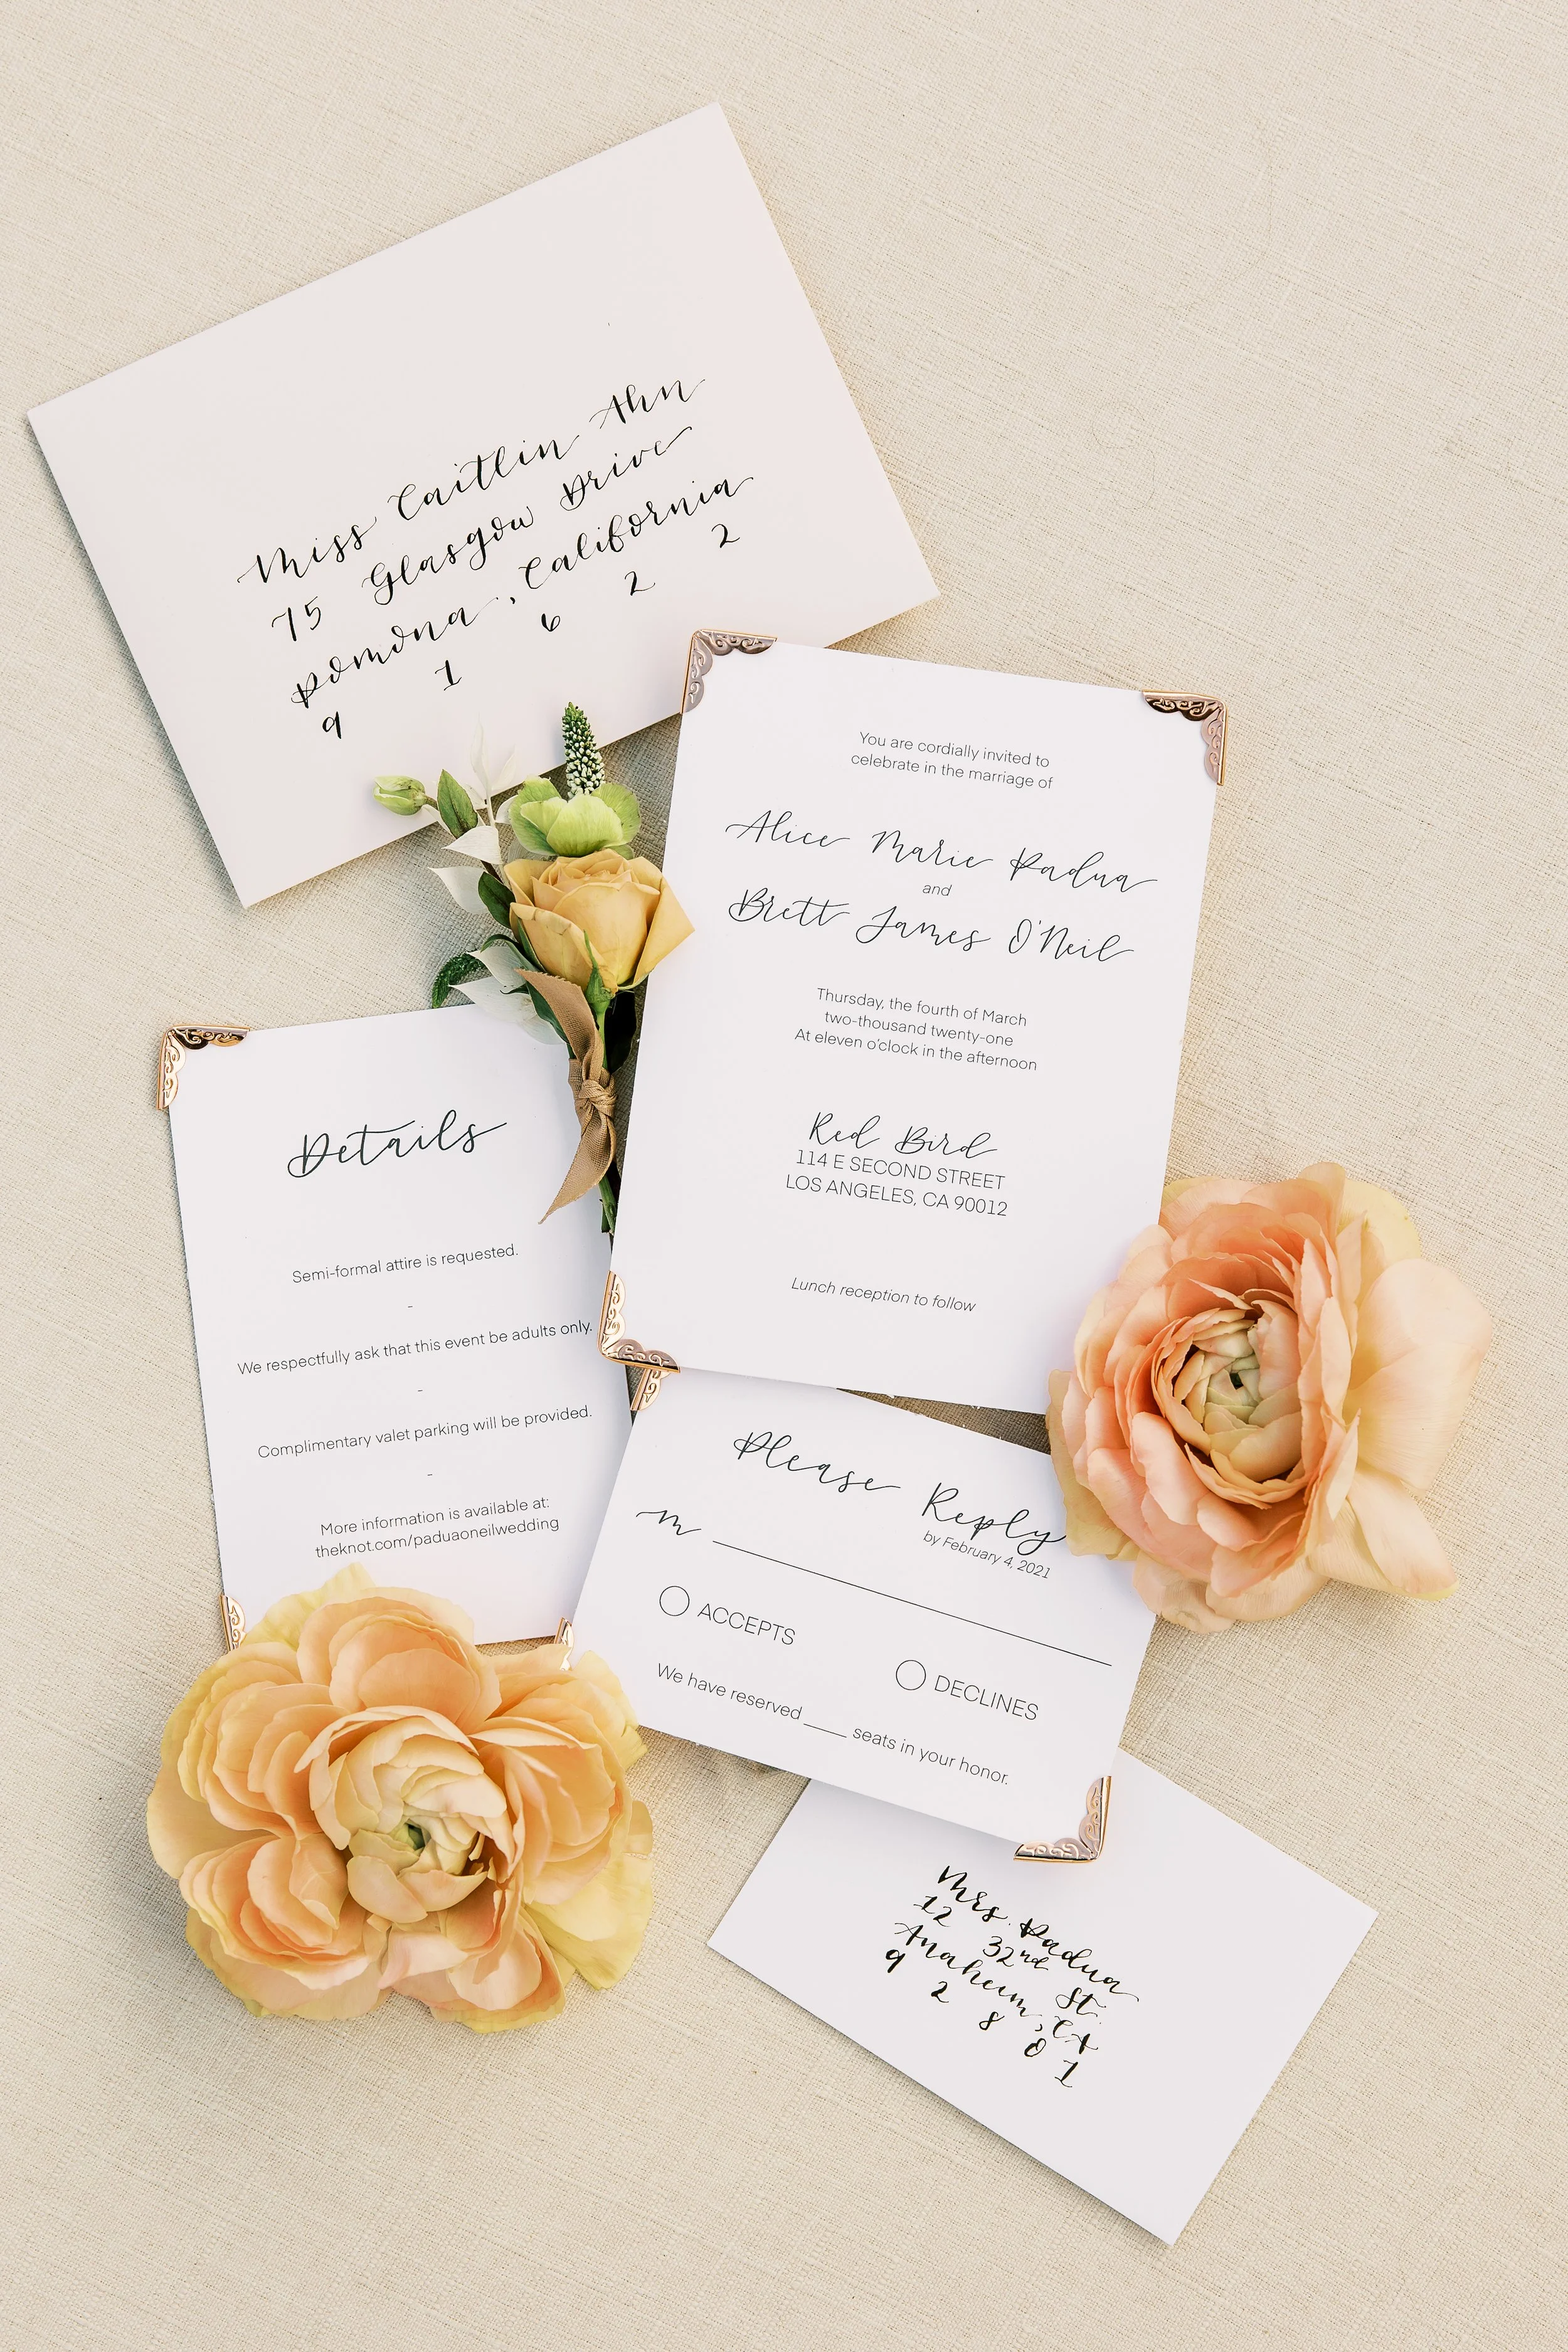 Miss Caitlin Ahn
75 Glasgow Drive
Pomona, California
9 1 6 2 2
You are cordially invited to
celebrate in the marriage of
Alice Marie Padua
and
Brett James O'Neil
Thursday, the fourth of March
two-thousand twenty-one
At eleven o'clock in the afternoon
Red Bird
114 E SECOND STREET
LOS ANGELES, CA 90012
Lunch reception to follow
Details
Semi-formal attire is requested.
-
We respectfully ask that this event be adults only.
-
Complimentary valet parking will be provided.
-
More information is available at:
theknot.com/paduaoneilwedding
Please Reply
by February 4, 2021
M
ACCEPTS
DECLINES
We have reserved ____ seats in your honor.
Mrs. Padua
12 32nd St.
Anaheim, CA
9 2 8 0 1